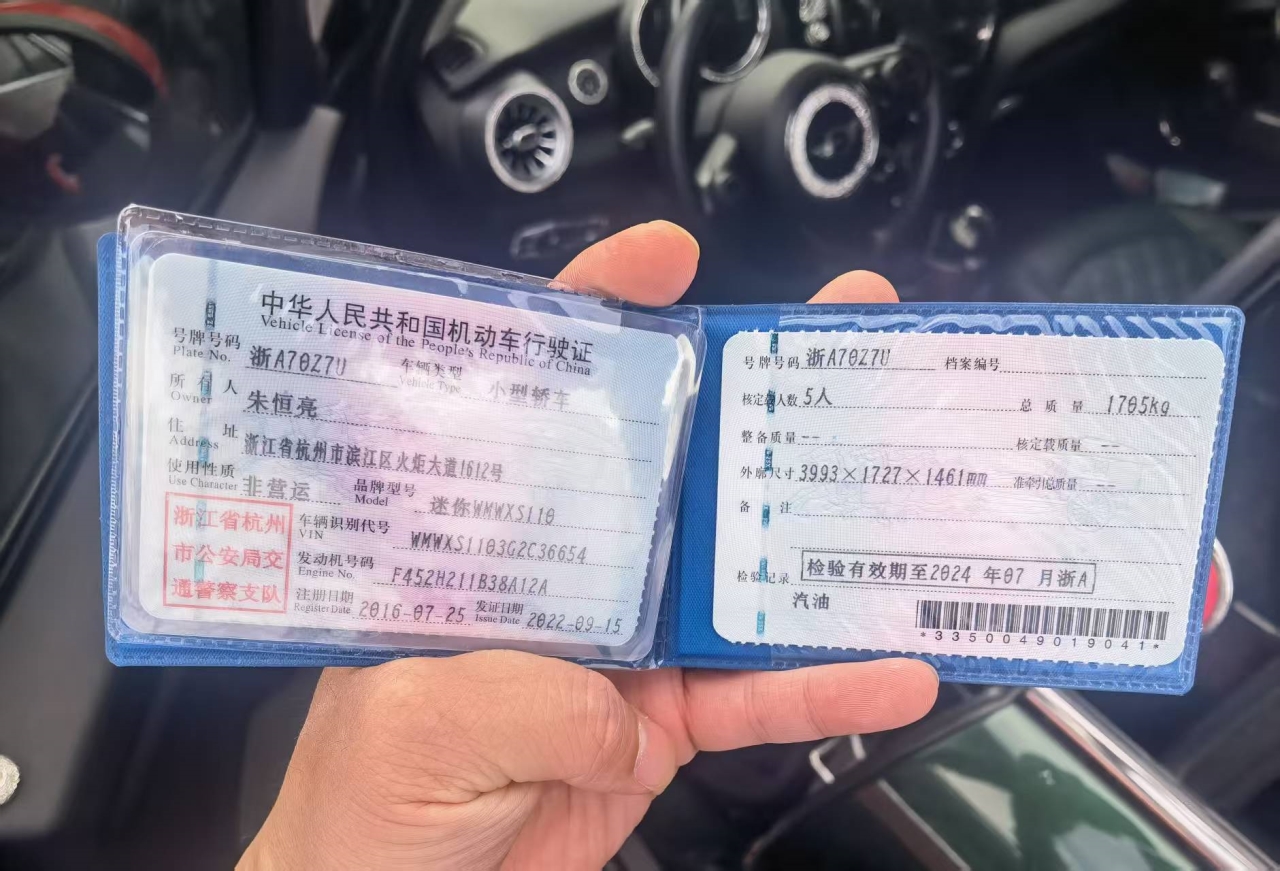 中华人民共和国机动车行驶证
Vehicle License of the People's Republic of China
号牌号码 浙A70Z7U 车辆类型 小型轿车
Plate No. Vehicle Type
所有人 朱恒亮
Owner
住址 浙江省杭州市滨江区火炬大道1612号
Address
使用性质 非营运 品牌型号 迷你WMWXS110
Use Character Model
浙江省杭州
市公安局交
通警察支队
车辆识别代号 WMWXS1103G2C36654
VIN
发动机号码 F452H211B38A12A
Engine No.
注册日期 2016-07-25 发证日期 2022-09-15
Register Date Issue Date
号牌号码 浙A70Z7U 档案编号
核定载人数 5人 总质量 1705kg
整备质量 -- 核定载质量 --
外廓尺寸 3993×1727×1461mm 准牵引总质量 --
备注
检验记录 检验有效期至2024年07月浙A
汽油
*3350049019041*